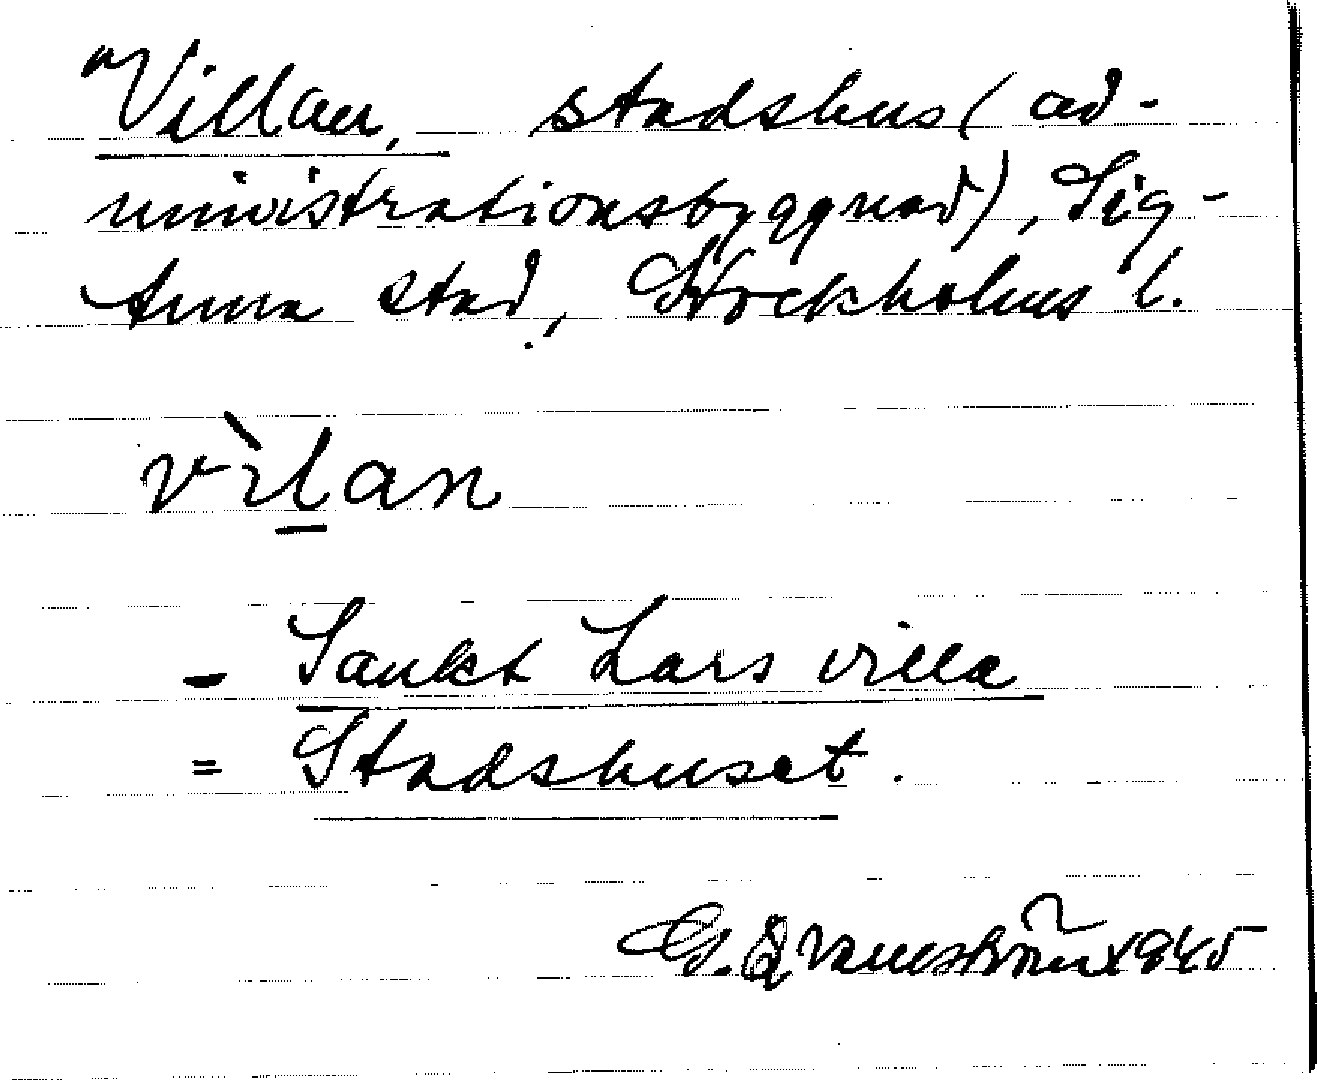 "Villan, stadshus (ad-
ministrationsbyggnad), Sig-
tuna stad, Stockholms l.
vìlan
= Sankt Lars villa
= Stadshuset.
G. Qvarnström 1945